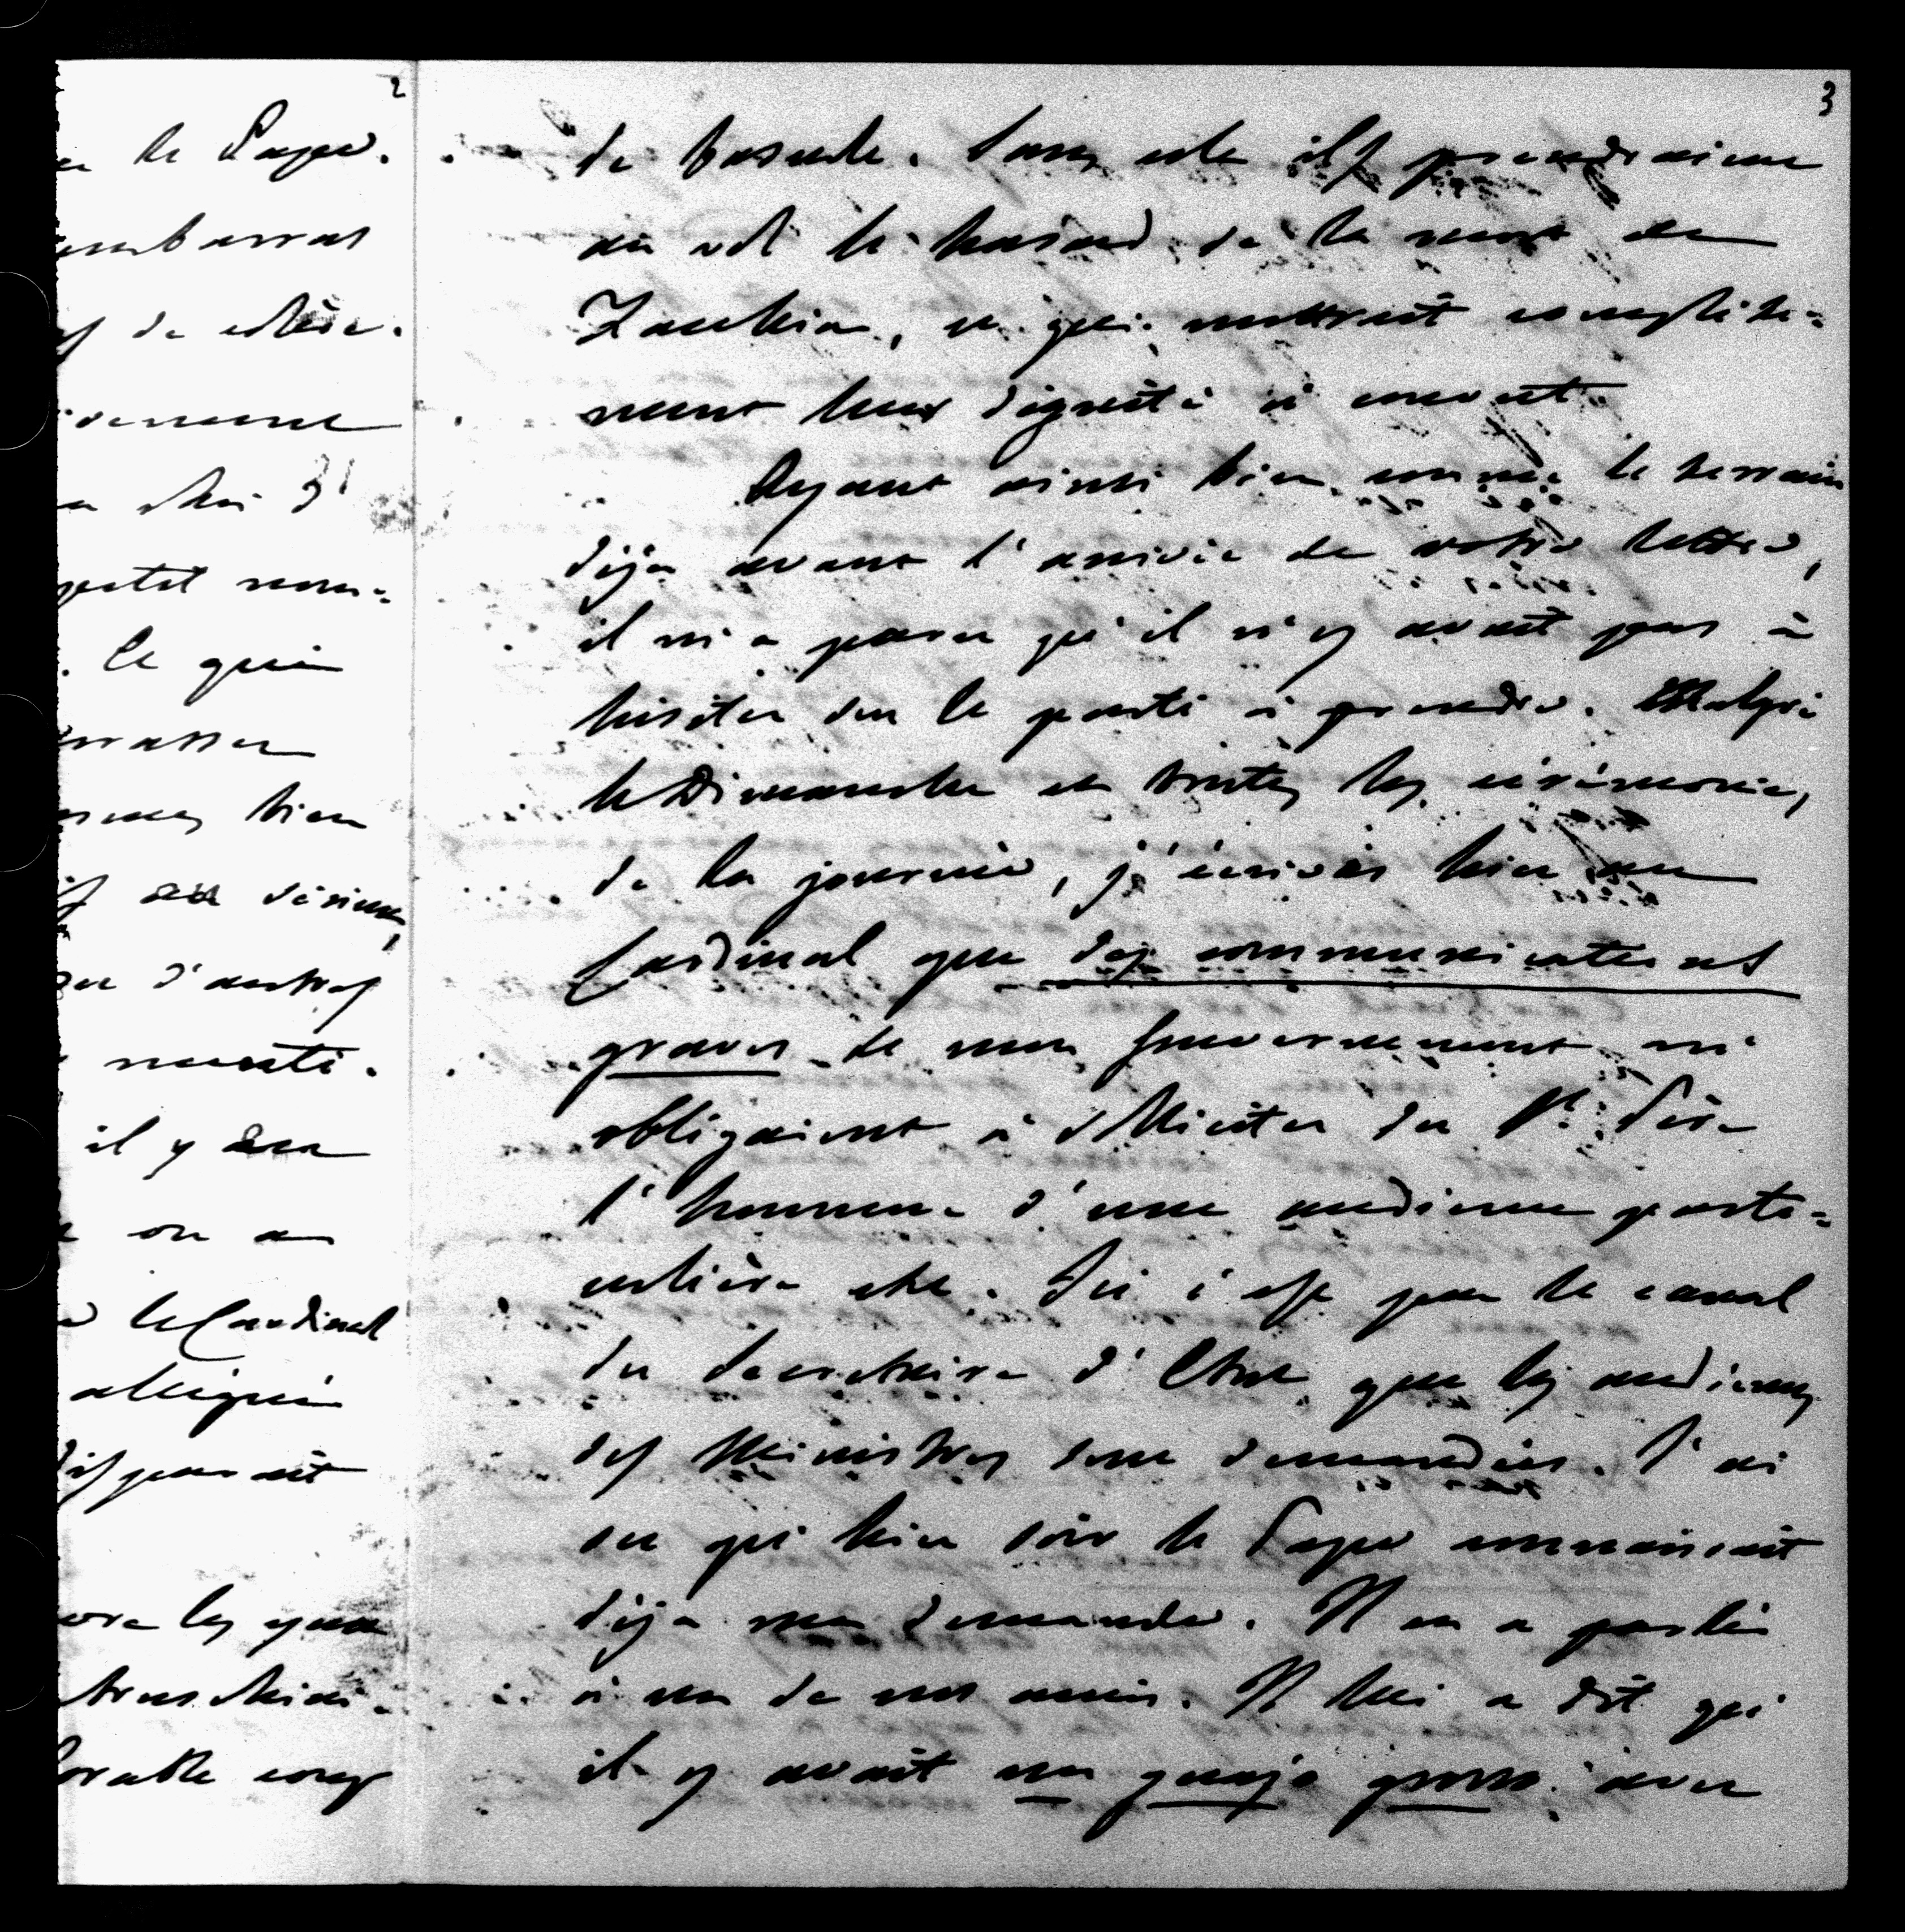 2
le Pape.
embarras
de colère.
petit nom-
Ce qui
bien
d'autres
menti.
il y a un
on a
le Cardinal
allégué
disparait
les yeux
coup
3
de bascule. Sans cela ils prendraient
au vol le hasard de la mort de
Zacchia, ce qui mettrait complète-
ment leur dignité à couvert.
Ayant ainsi bien connu le terrain
déja avant l'arrivée de votre lettre,
il m'a paru qu'il n'y avait pas à
hésiter sur le parti à prendre. Malgré
le Dimanche et toutes les cérémonies,
de la journée, j'écrivis hier au
Cardinal que des communications
graves de mon Gouvernement m'
obligaient à solliciter du St. Père
l'honneur d'une audience parti-
culière etc. Ici c'est par le canal
du Secretaire d'Etat que les audiences
des Ministres sont demandées. J'ai
su qu'hier soir le Pape connaissait
déja ma demande. Il en a parlé
à un de mes amis. Il lui a dit qu'
il y avait un guajo grosso avec